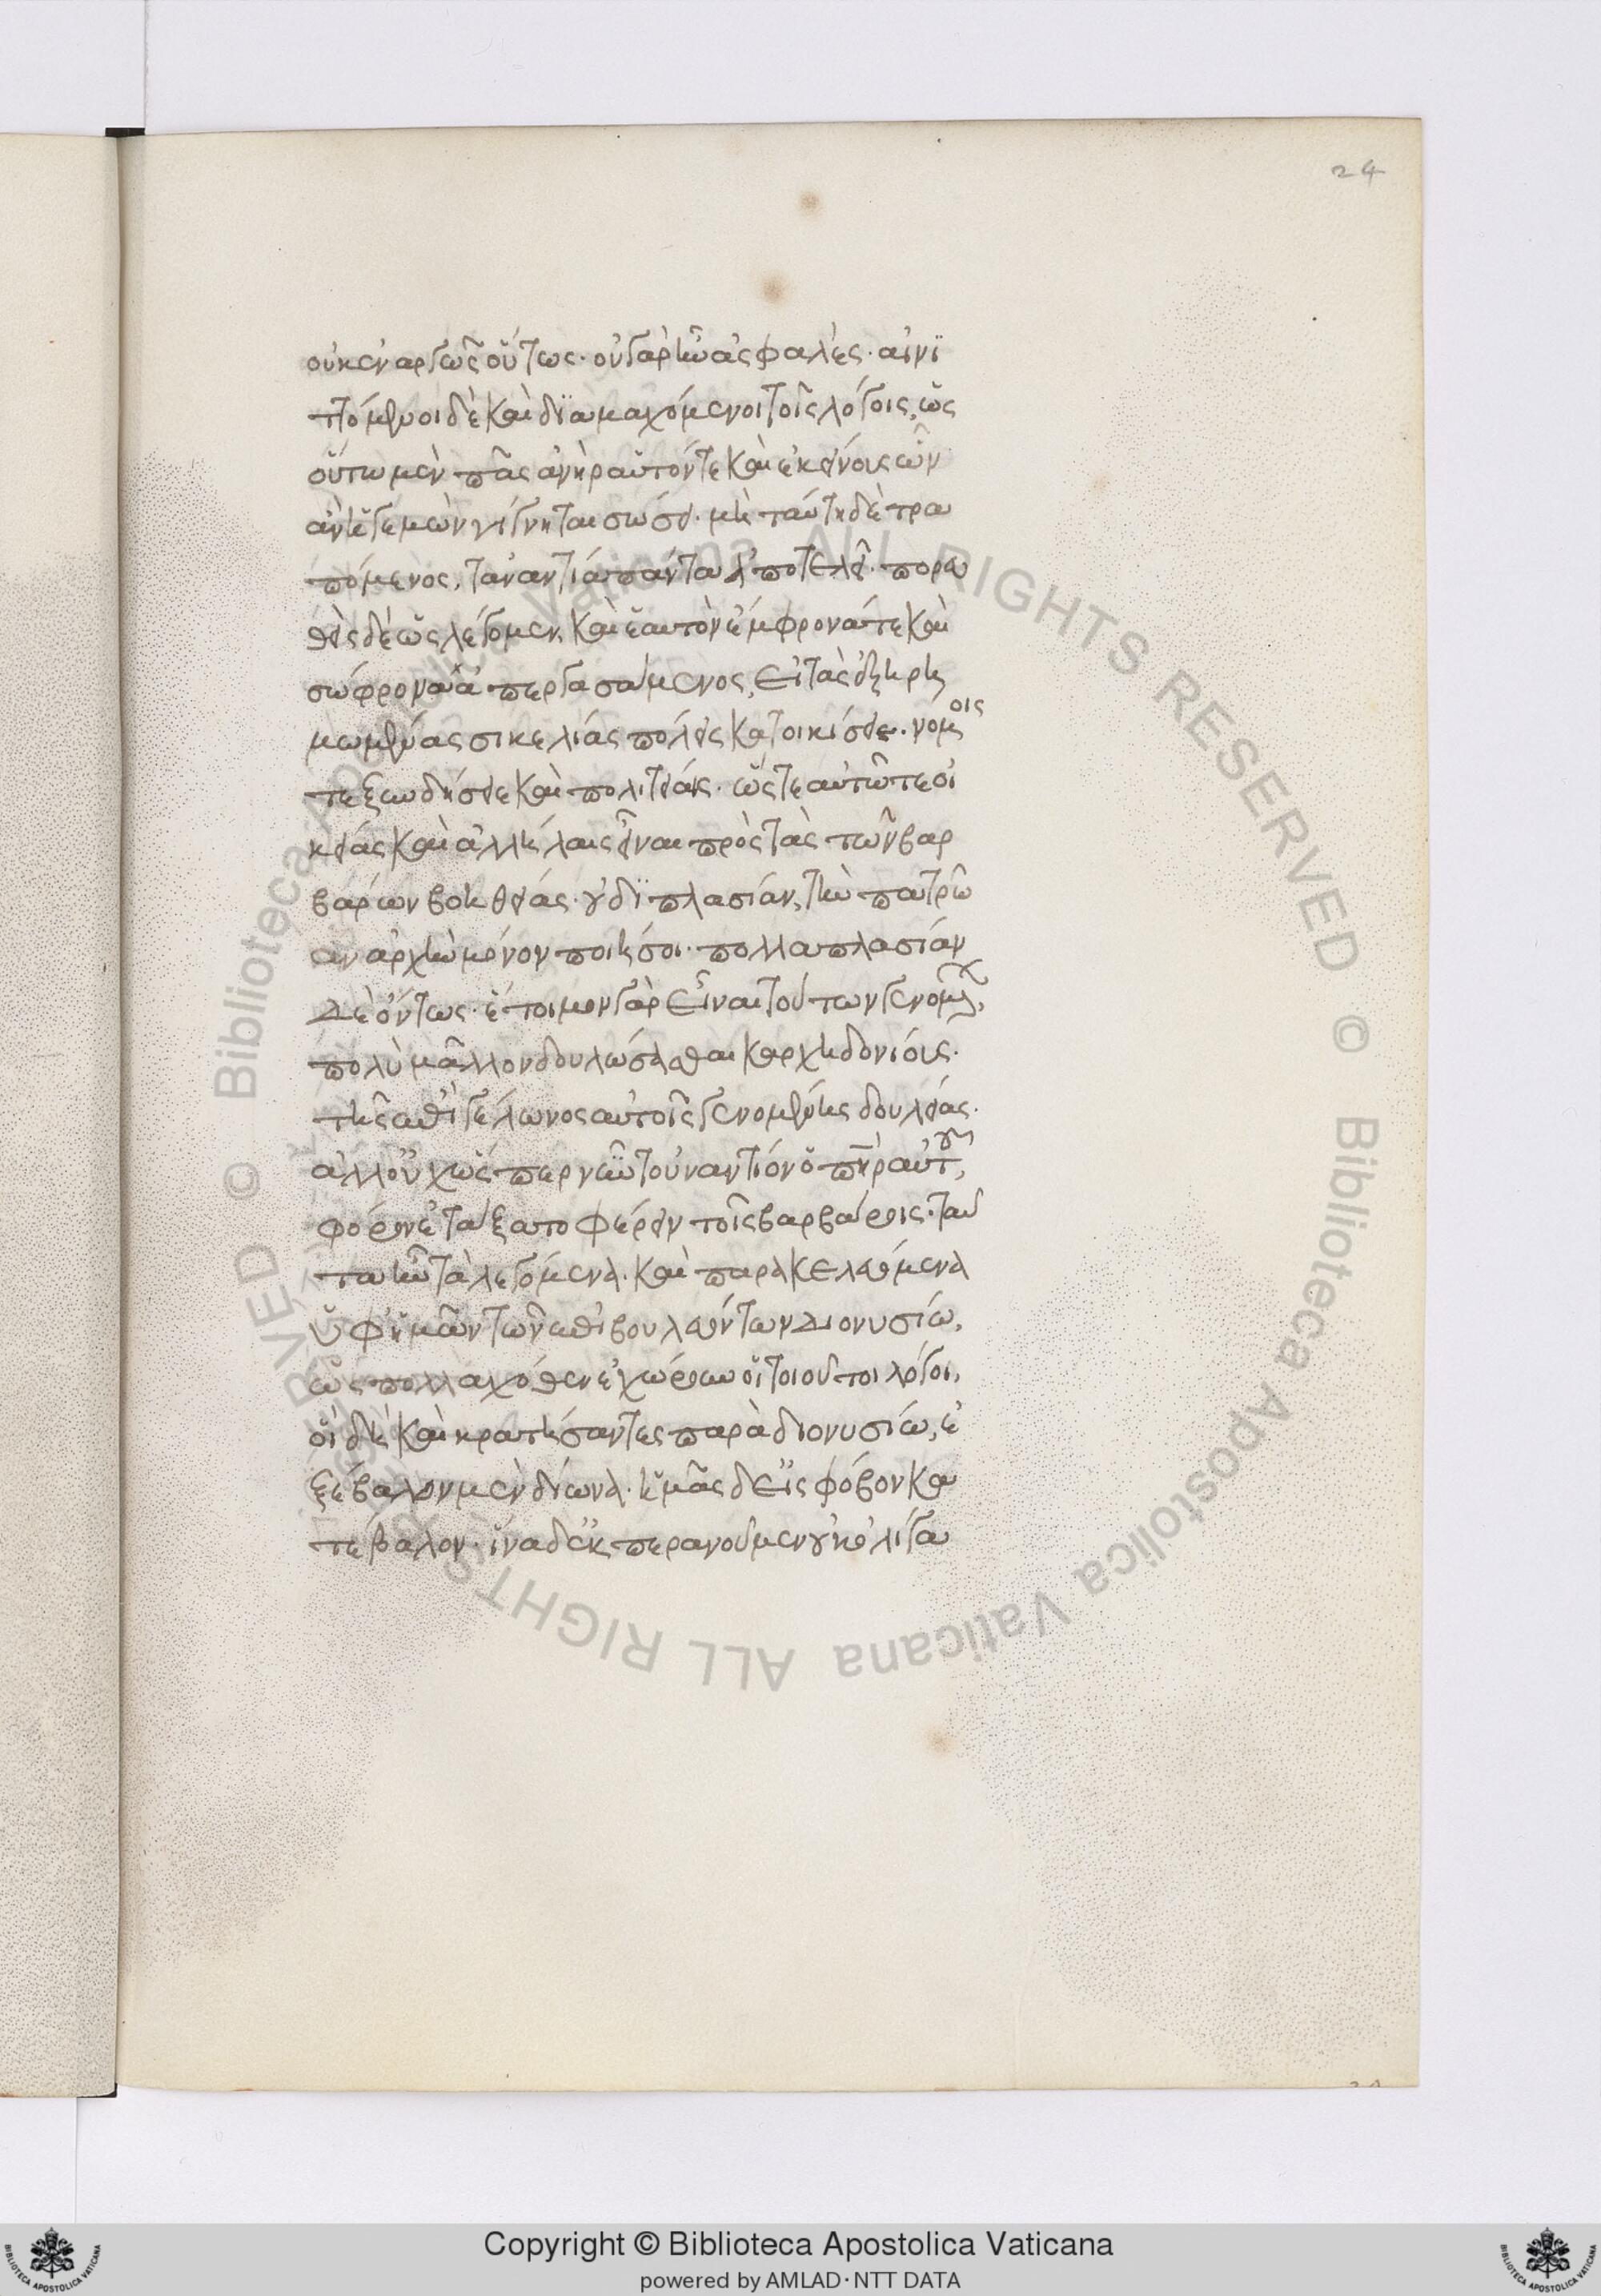 24
οὐκ ἐναργῶς οὕτως· οὐ γὰρ ἦν ἀσφαλὲς· αἰνι
ττόμενοι δὲ καὶ διαμαχόμενοι τοῖς λόγοις, ὡς
οὕτω μὲν πᾶς ἀνὴρ αὑτόν τε καὶ ἐκείνους ὧν
ἂν ἡγεμὼν γίγνηται σώσει· μὴ ταύτῃ δὲ τρα
πόμενος, τἀναντία πάντα ἀποτελεῖ· πορευ
θεὶς δὲ ὡς λέγομεν, καὶ ἑαυτὸν ἔμφρονά τε καὶ
σώφρονα ἀπεργασάμενος, εἰ τὰς ἐξηρη
μωμένας σικελίας πόλεις κατοικίσειε· νόμοις
τε ξυνδήσειε καὶ πολιτείαις· ὥστε αὐτῷ τε οἰ
κείας καὶ ἀλλήλαις εἶναι πρὸς τὰς τῶν βαρ
βάρων βοηθείας· οὐ διπλασίαν, τὴν πατρῴ
αν ἀρχὴν μόνον ποιήσοι· πολλαπλασίαν
δὲ ὄντως· ἕτοιμον γὰρ εἶναι τούτων γενομένων,
πολὺ μᾶλλον δουλώσασθαι καρχηδονίους·
τῆς ἐπὶ γέλωνος αὐτοῖς γενομένης δουλείας·
ἀλλ' οὐχ ὥσπερ νῦν τοὐναντίον ὁ πατὴρ αὐτοῦ,
φόρον ἐτάξατο φέρειν τοῖς βαρβάροις· ταῦ
τα ἦν τὰ λεγόμενα· καὶ παρακελευόμενα
ὑφ' ἡμῶν τῶν ἐπιβουλευόντων Διονυσίῳ,
ὡς πολλαχόθεν ἐχώρουν οἱ τοιοῦτοι λόγοι,
οἳ δὴ καὶ κρατήσαντες παρὰ διονυσίῳ, ἐ
ξέβαλον μὲν δίωνα· ἡμᾶς δ' εἰς φόβον κα
τέβαλον· ἵνα δ' ἐκπεραίνωμεν οὐκ ὀλίγα
Copyright © Biblioteca Apostolica Vaticana
powered by AMLAD·NTT DATA